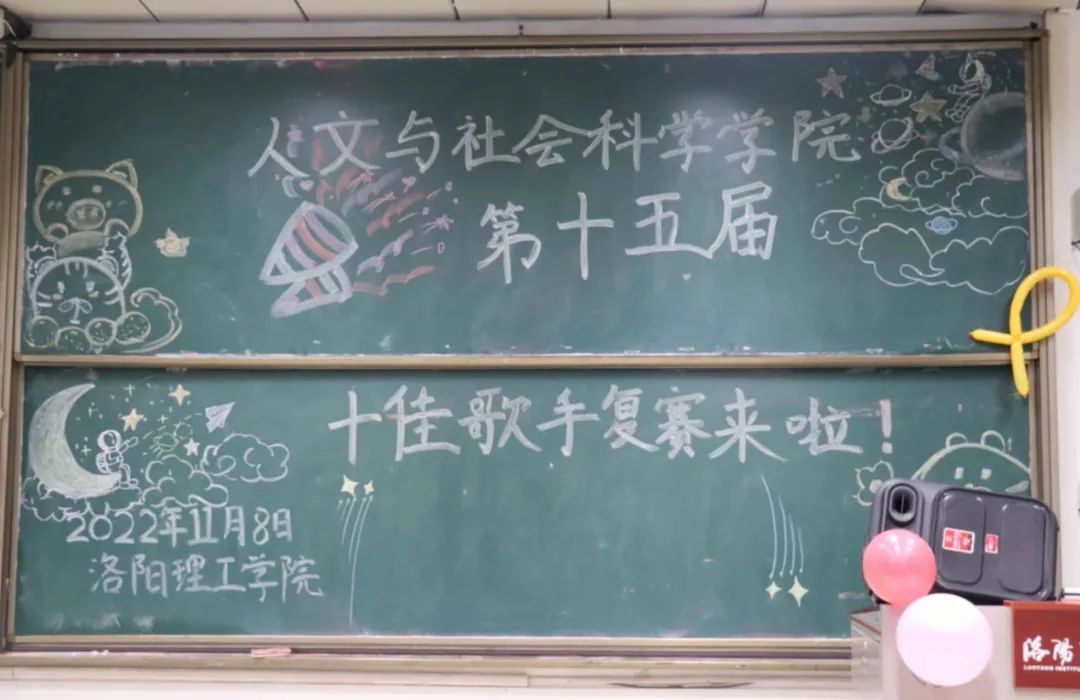 人文与社会科学学院
第十五届
十佳歌手复赛来啦！
2022年11月8日
洛阳理工学院
洛陽
LUOYANG INSTITU